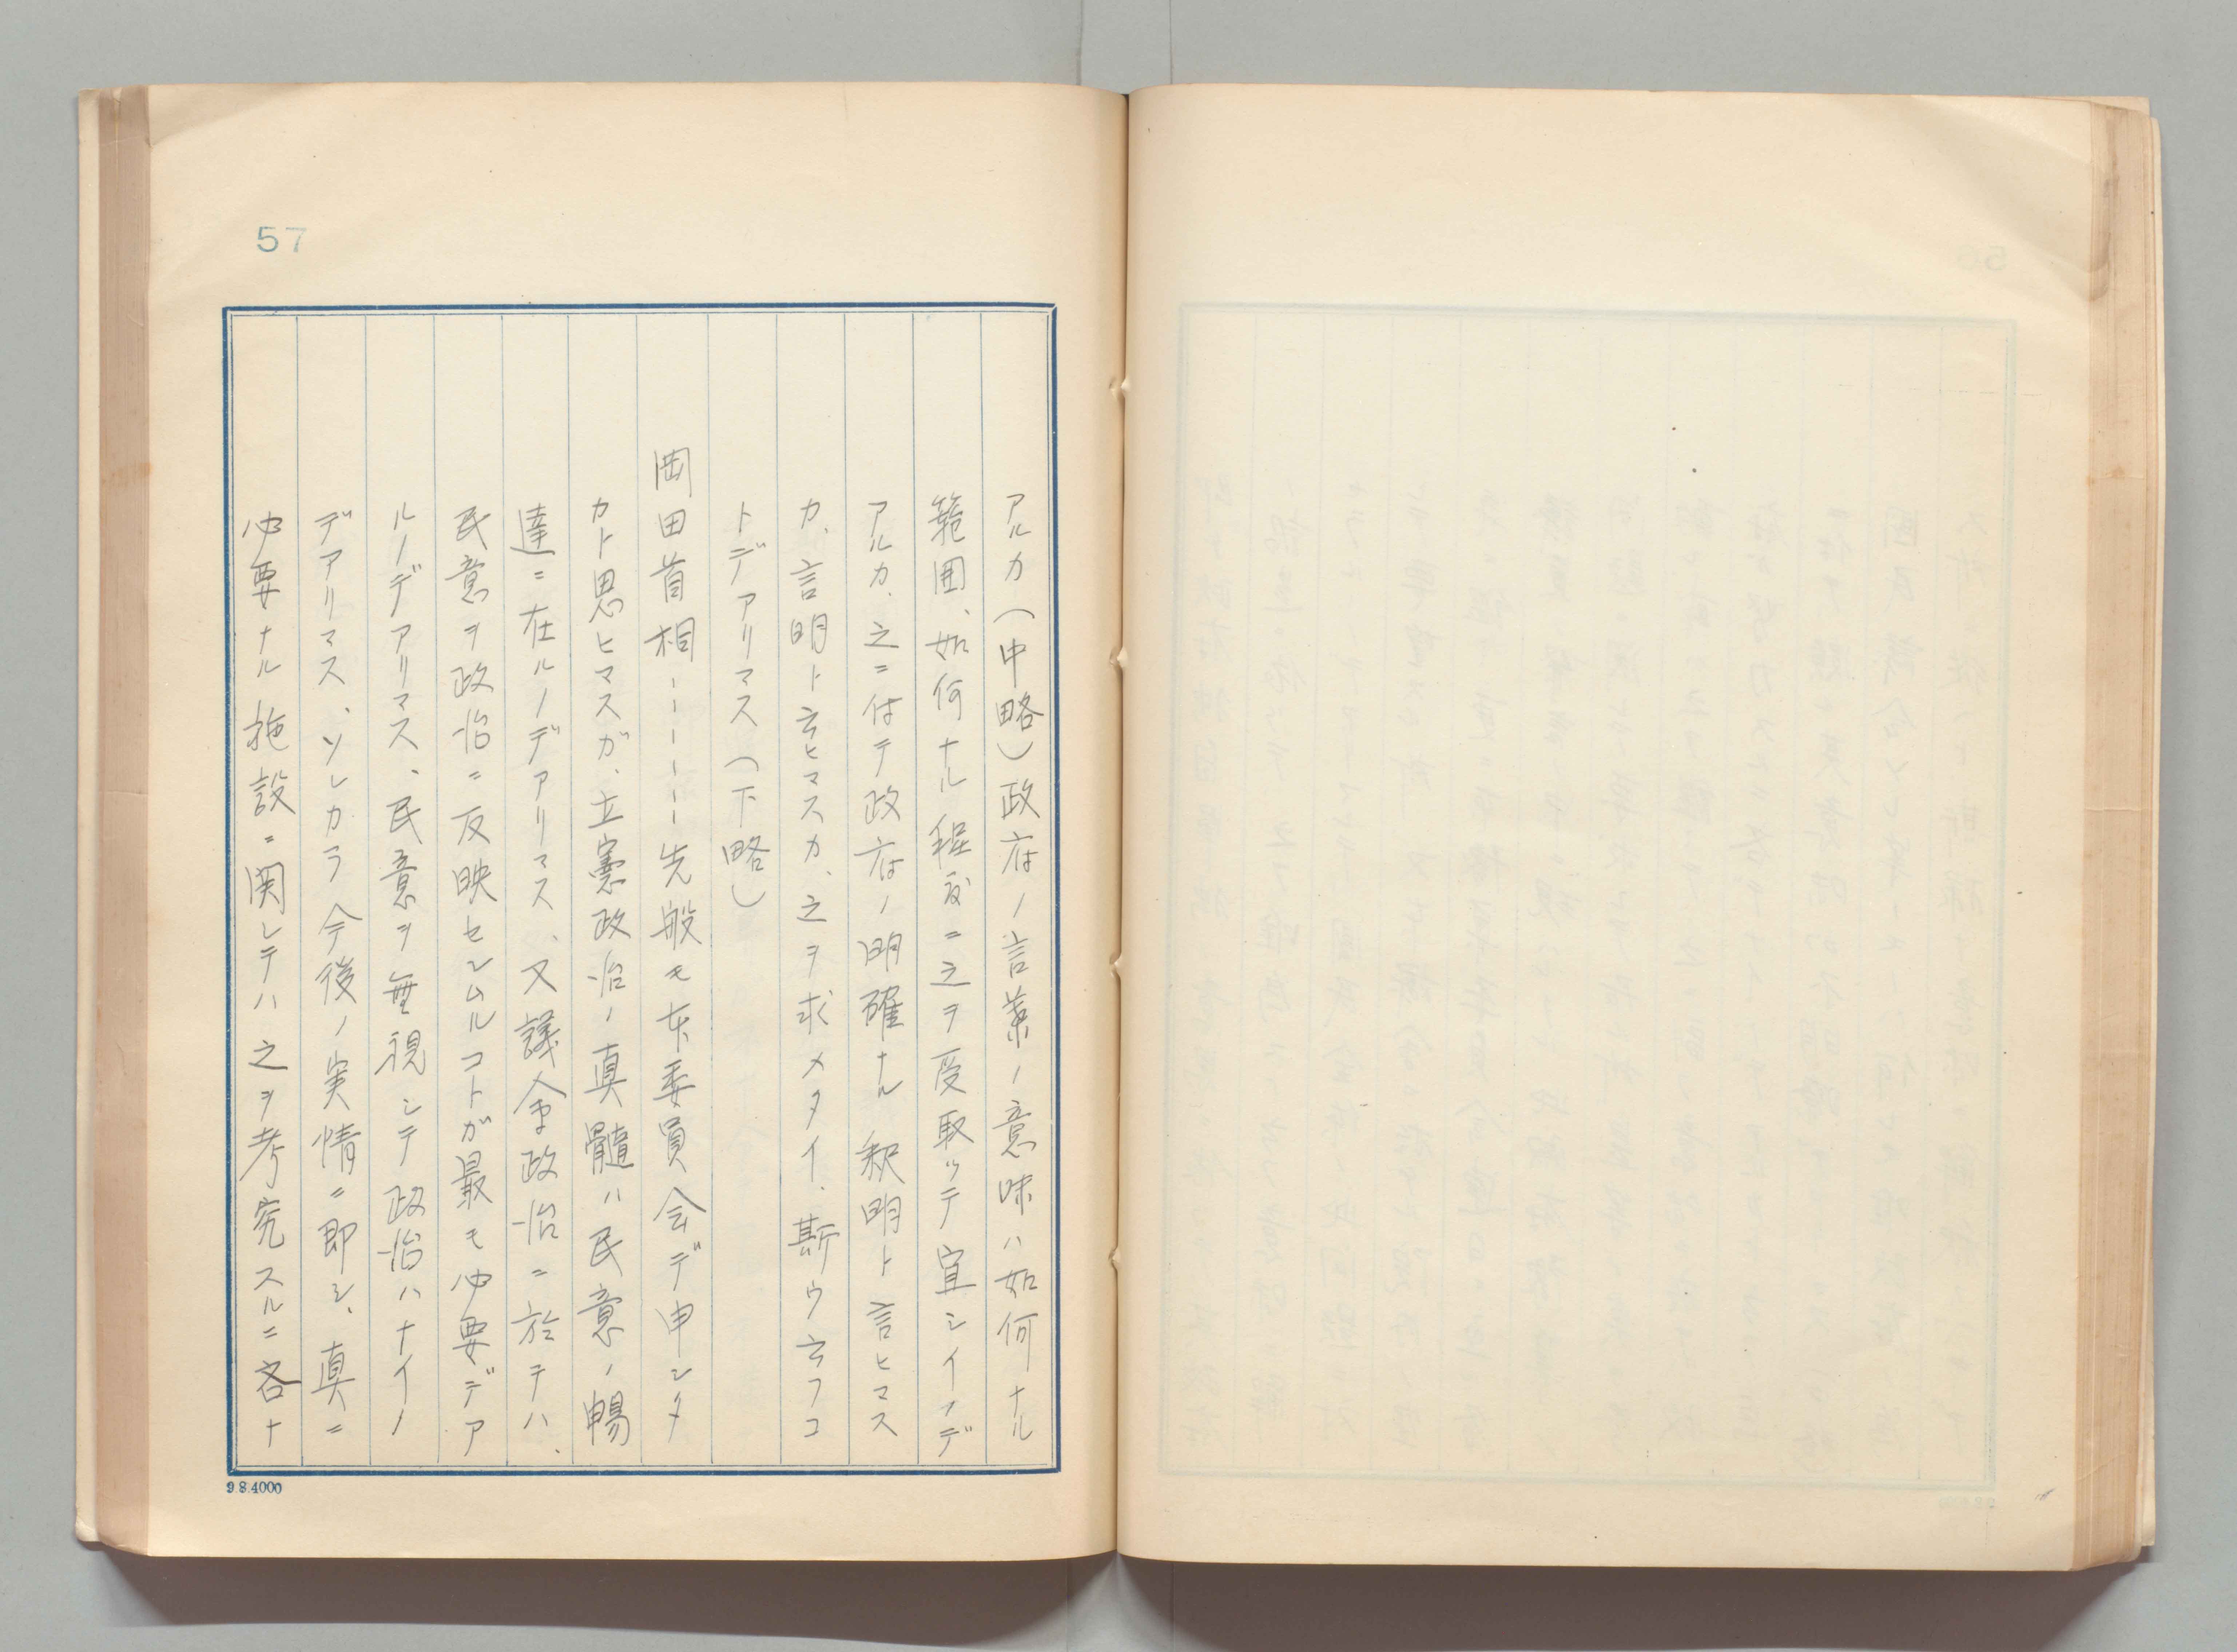 57
アルカ(中略)政府ノ言葉ノ意味ハ如何ナル
範囲、如何ナル程度ニ之ヲ受取ッテ宜シイノデ
アルカ、之ニ付テ政府ノ明確ナル釈明ト言ヒマス
カ、言明ト云ヒマスカ、之ヲ求メタイ、斯ウ云フコ
トデアリマス(下略)
岡田首相ーーーーー先般モ本委員会デ申シタ
カト思ヒマスガ、立憲政治ノ真髄ハ民意ノ暢
達ニ在ルノデアリマス、又議会政治ニ於テハ、
民意ヲ政治ニ反映セシムルコトガ最モ必要デア
ルノデアリマス、民意ヲ無視シテ政治ハナイノ
デアリマス、ソレカラ今後ノ実情ニ即シ、真ニ
必要ナル施設ニ関シテハ之ヲ考究スルニ吝ナ
9.8.4000